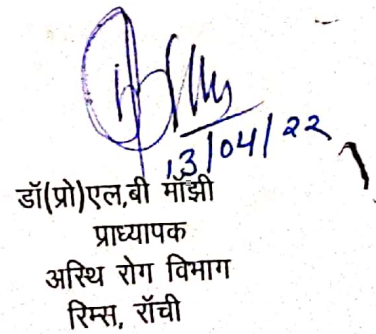 13/04/22
डॉ(प्रो)एल,बी माँझी
प्राध्यापक
अस्थि रोग विभाग
रिम्स, राँची